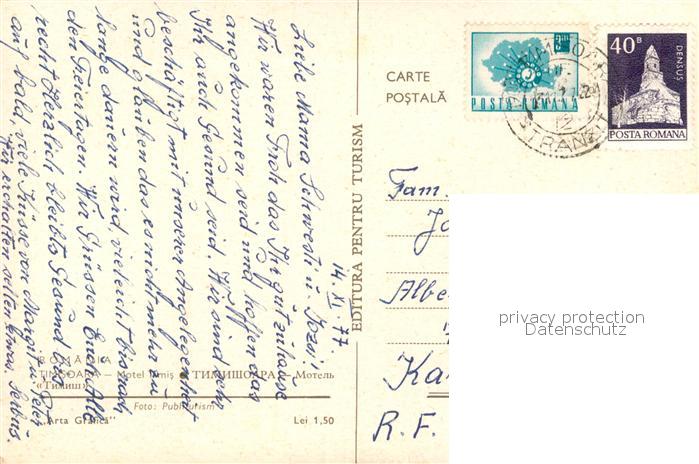 14. XI. 77
Liebe Mama Schwesti u. Jozsi!
Wir waren Froh das Ihr gut zuhause
angekommen seid und hoffen das
Ihr auch Gesund seid. Wir sind sehr
beschäftigt mit unserer Angelegenheit
und glauben das es nicht mehr zu
lange dauern wird, vieleicht bis nach
den Feiertagen. Wir Grüssen Euch Alle
recht Herzlich bleibts Gesund
auf bald viele Küsse von Margit u. Peter
Wir erhalten selten etwas
ROMÂNIA
TIMIȘOARA — Motel Timiș ● ТИМИШОАРА — Мотель
«Тимиш»
Foto: Publiturism
„Arta Grafică”
Lei 1,50
EDITURA PENTRU TURISM
CARTE
POȘTALĂ
POSTA ROMANA
40 B
DENSUS
POSTA ROMANA
Fam.
Jo
Albe
Ka
R. F.
privacy protection
Datenschutz